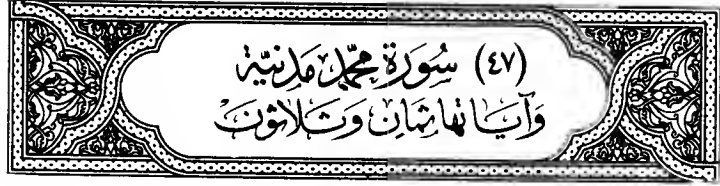 (٤٧) سُورَة محمّد مَدَنيّة
وَآيَاتها ثمَان وَثَلاثونَ